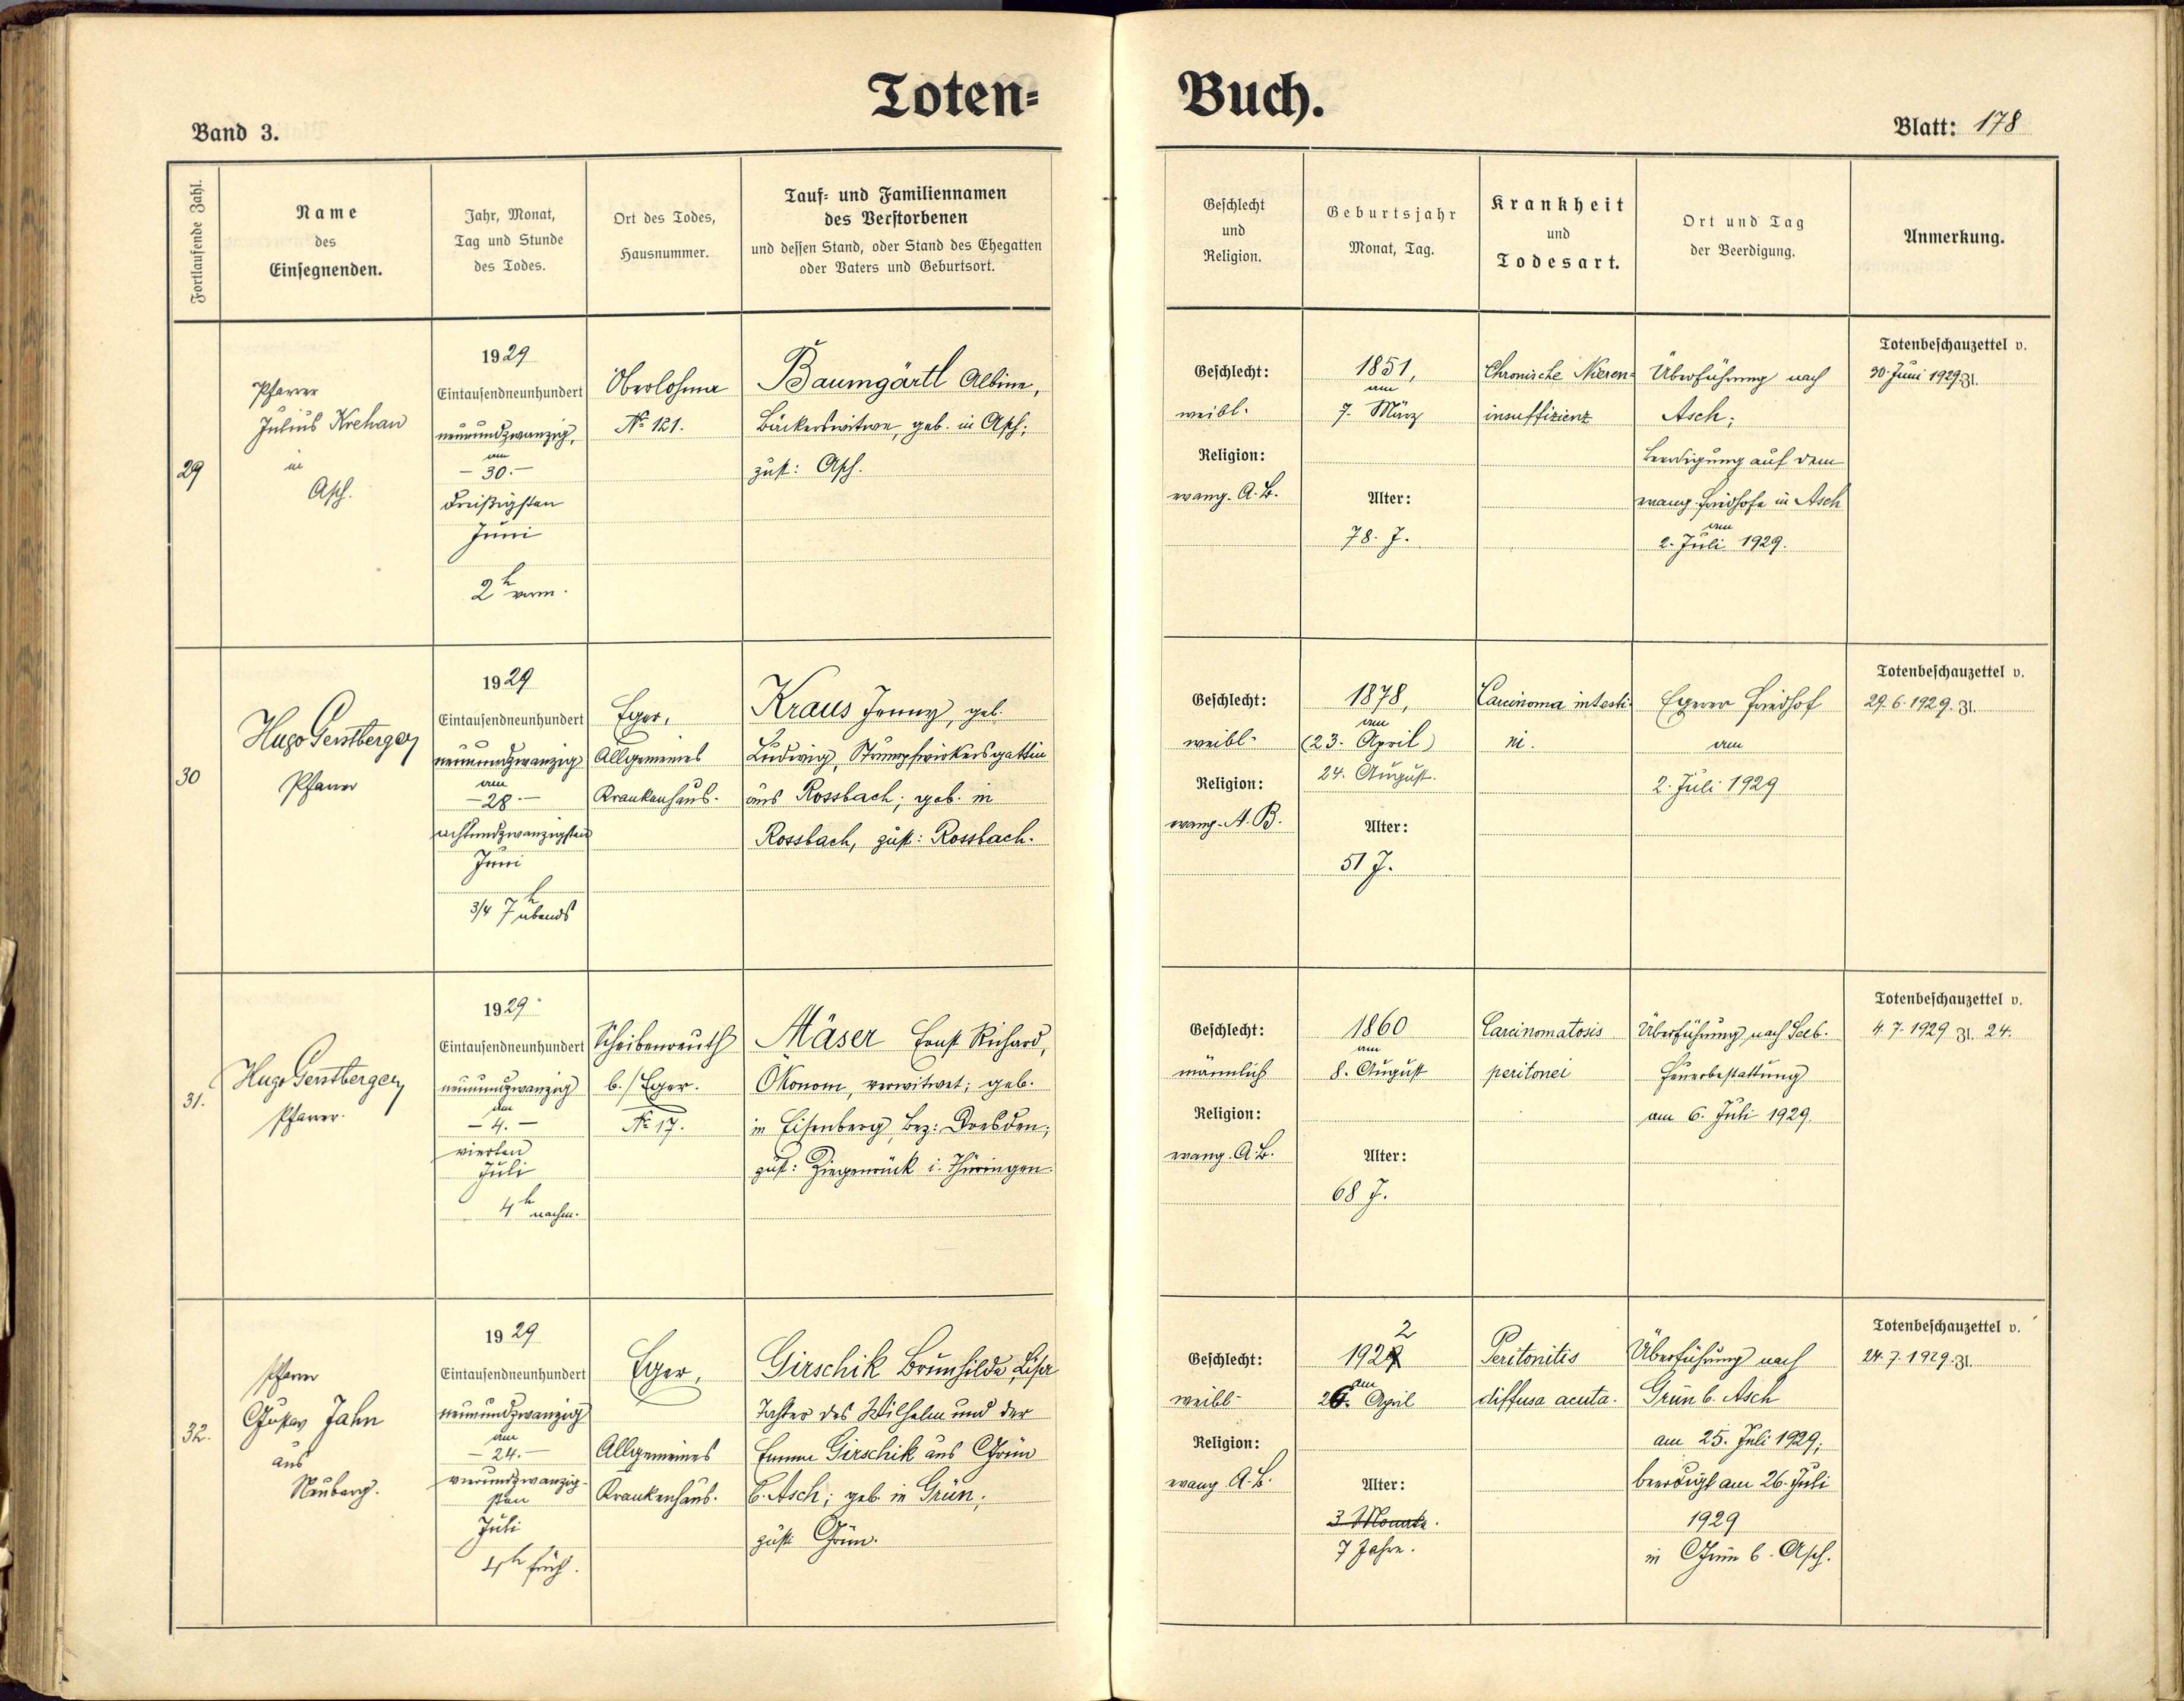 Toten=
Buch.
Band 3.
Blatt: 178
Fortlaufende Zahl.
Name
des
Einsegnenden.
Jahr, Monat,
Tag und Stunde
des Todes.
Ort des Todes,
Hausnummer.
Tauf= und Familiennamen
des Verstorbenen
und dessen Stand, oder Stand des Ehegatten
oder Vaters und Geburtsort.
Geschlecht
und
Religion.
Geburtsjahr
Monat, Tag.
Krankheit
und
Todesart.
Ort und Tag
der Beerdigung.
Anmerkung.
29
Pfarrer
Julius Krehan
in
Asch.
1929
Eintausendneunhundert
neunundzwanzig,
am
– 30. –
dreißigsten
Juni
2h vorm.
Oberlohma
No 121.
Baumgärtl Albine,
Bäckerswitwe, geb. in Asch;
zust: Asch.
Geschlecht:
weibl.
Religion:
evang. A. B.
1851,
am
7. März
Alter:
78. J.
Chronische Nieren=
insuffizienz
Überführung nach
Asch;
Beerdigung auf dem
evang. Friedhofe in Asch
am
2. Juli 1929.
Totenbeschauzettel v.
30. Juni 1929. Zl.
30
Hugo Gerstberger
Pfarrer
1929
Eintausendneunhundert
neunundzwanzig
am
– 28 –
achtundzwanzigsten
Juni
3/4 7h abends
Eger,
Allgemeines
Krankenhaus.
Kraus Jenny, geb.
Ludwig, Strumpfwirkersgattin
aus Rossbach; geb. in
Rossbach, zust: Rossbach.
Geschlecht:
weibl.
Religion:
evang. A. B.
1878,
am
(23. April)
24. August.
Alter:
51 J.
Carcinoma intesti-
ni.
Egerer Friedhof
am
2. Juli 1929
Totenbeschauzettel v.
29. 6. 1929. Zl.
31.
Hugo Gerstberger
Pfarrer.
1929
Eintausendneunhundert
neunundzwanzig
am
– 4. –
vierten
Juli
4h nachm.
Scheibenreuth
b./Eger.
No 17.
Mäser Ernst Richard,
Ökonom, verwitwet; geb.
in Eisenberg, Bez: Dresden;
zust: Ziegenrück i. Thüringen.
Geschlecht:
männlich
Religion:
evang. A. B.
1860
am
8. August
Alter:
68 J.
Carcinomatosis
peritonei
Überführung nach Seeb.
Feuerbestattung
am 6. Juli 1929.
Totenbeschauzettel v.
4. 7. 1929 Zl. 24.
32.
Pfarrer
Gustav Jahn
aus
Neuberg.
1929
Eintausendneunhundert
neunundzwanzig
am
– 24. –
vierundzwanzig-
sten
Juli
früh.
Eger,
Allgemeines
Krankenhaus.
Girschik Brunhilde Lisa
Tochter des Wilhelm und der
Emma Girschik aus Grün
b. Asch; geb. in Grün;
zust: Grün.
Geschlecht:
weibl.
Religion:
evang. A. B.
2
1929
am
26. April
Alter:
3 Monate.
7 Jahre.
Peritonitis
diffusa acuta.
Überführung nach
Grün b. Asch
am 25. Juli 1929;
beerdigt am 26. Juli
1929
in Grün b. Asch.
Totenbeschauzettel v.
24. 7. 1929. Zl.